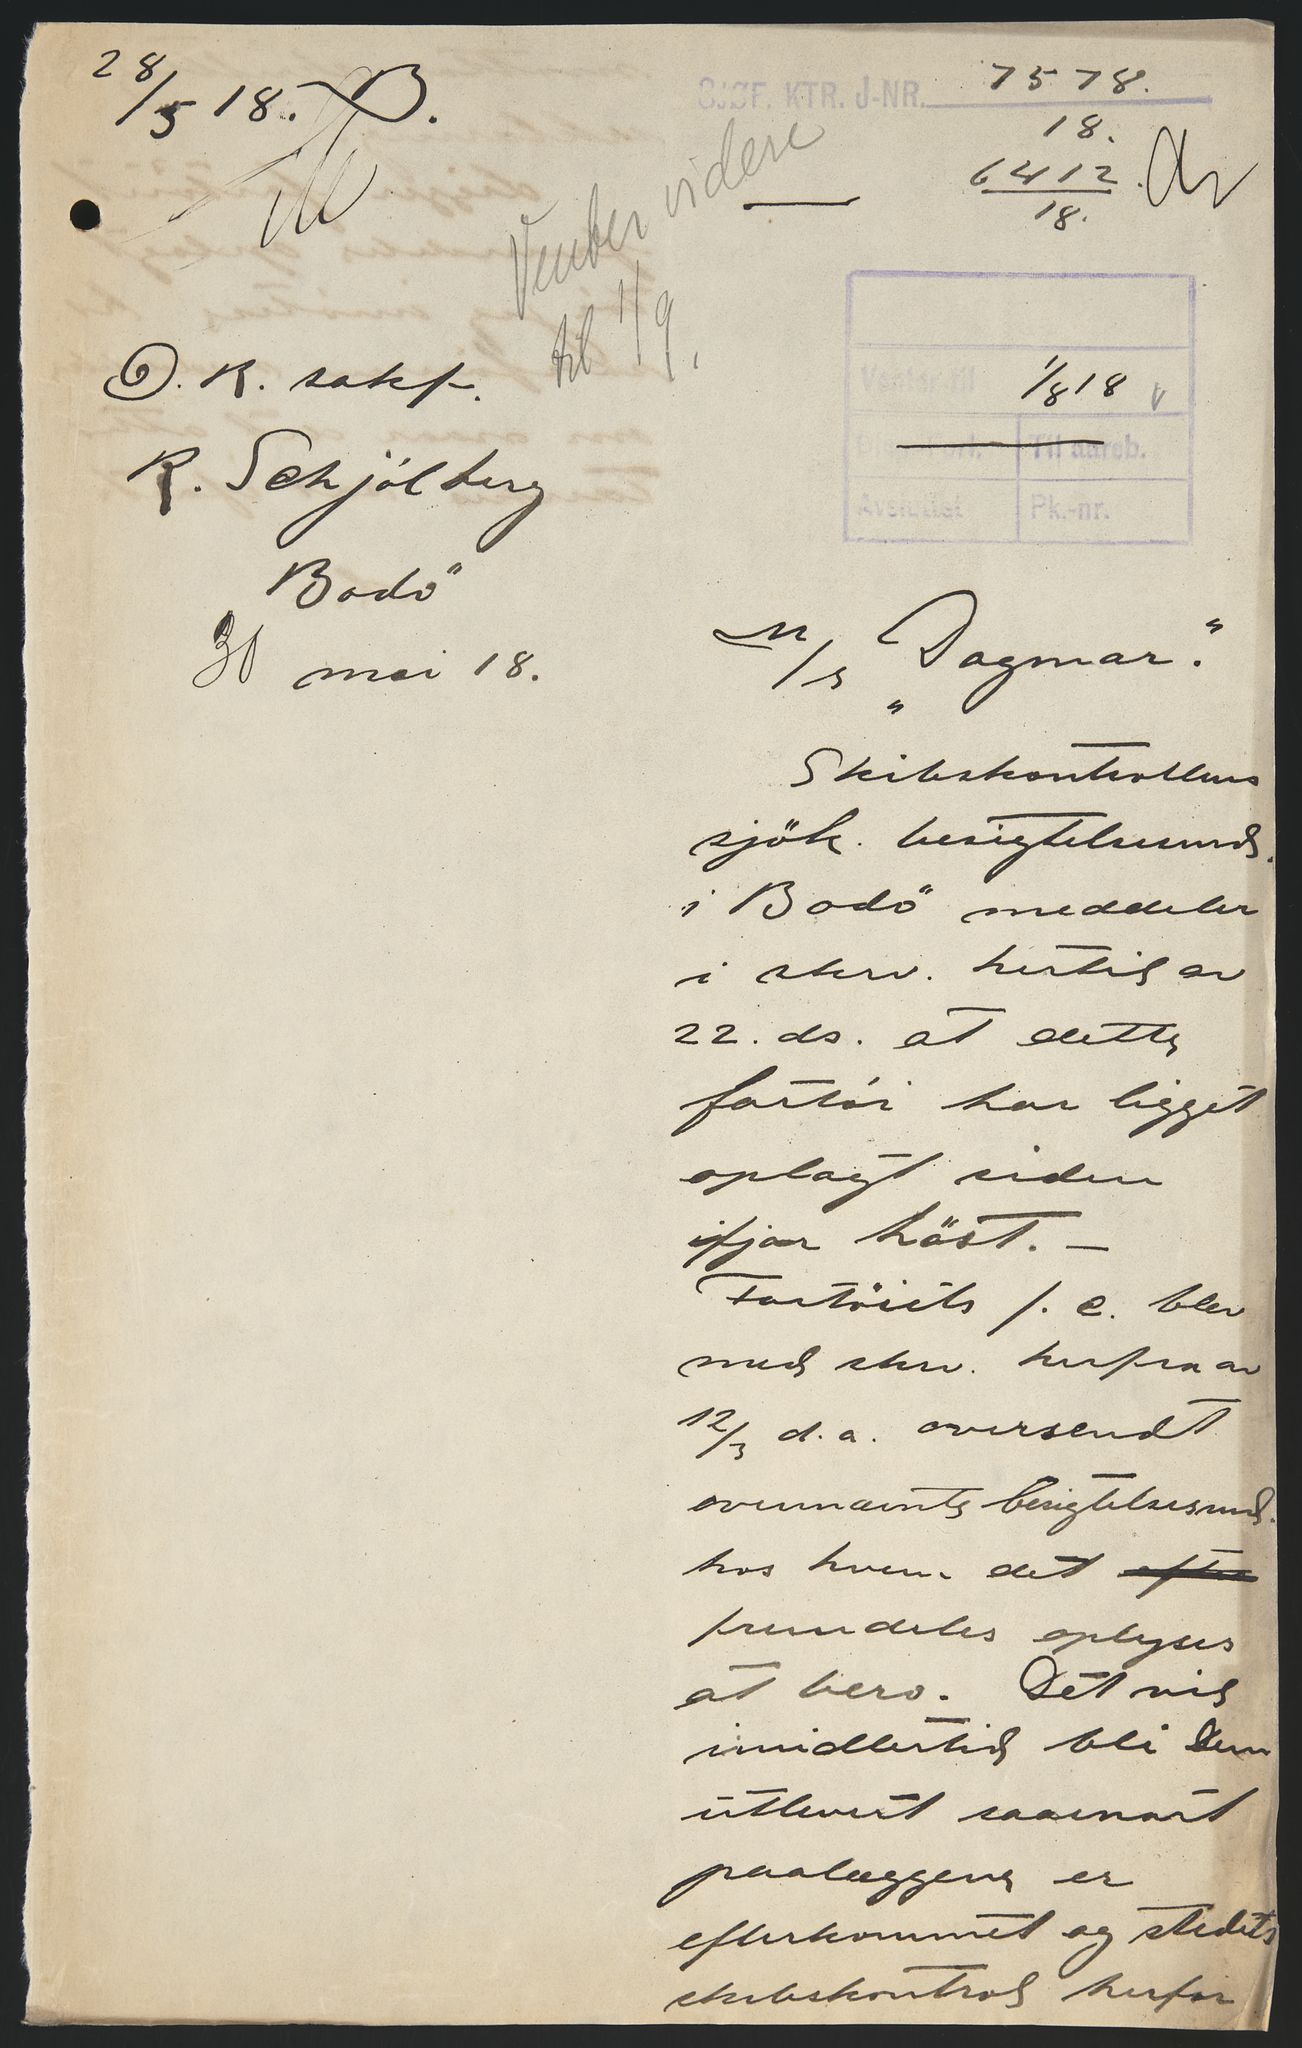 28/5 18. B.
SJØF. KTR. J-NR. 7578.
18.
6412.
18.
Venter videre
til 1/9.
Venter til 1/8 18
Til aarsb.
Avsluttet
Pk.-nr.
O. R. sakf.
R. Schjölberg
Bodö
30 mai 18.
M/S "Dagmar".
Skibskontrollens
sjök. besigtelsesmd.
i Bodö meddeler
i skrv. hertil av
22. ds. at dette
fartöi har ligget
oplagt siden
ifjor höst. —
Fartöiets f. c. blev
med skrv. herfra av
12/3 d.a. oversendt
ovennævnte besigtelsesmd.
hos hvem det efter
fremdeles oplyses
at bero. Det vil
imidlertid bli Dem
utlevert saasnart
paalæggene er
efterkommet og stedets
skibskontrol herfor